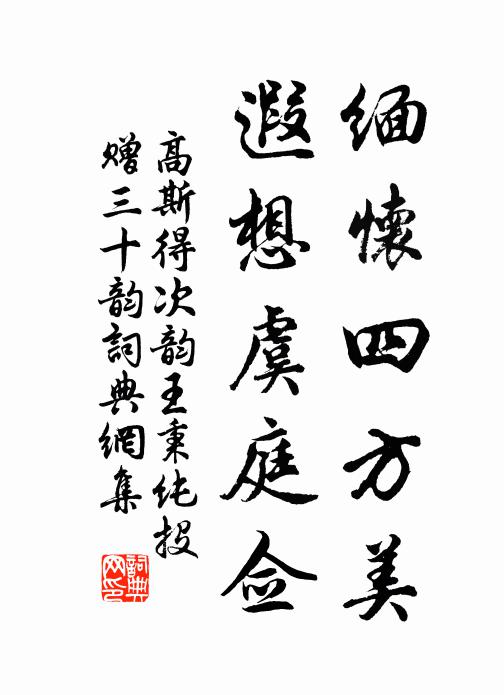 缅懷四方美
遐想虞庭佥
高斯得次韵王秉纯投
赠三十韵詞典網集
詞典
网印